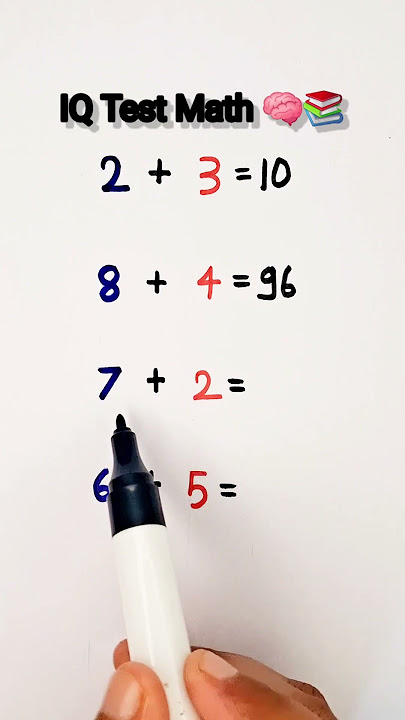 IQ Test Math 🧠📚
2 + 3 = 10
8 + 4 = 96
7 + 2 =
6 + 5 =